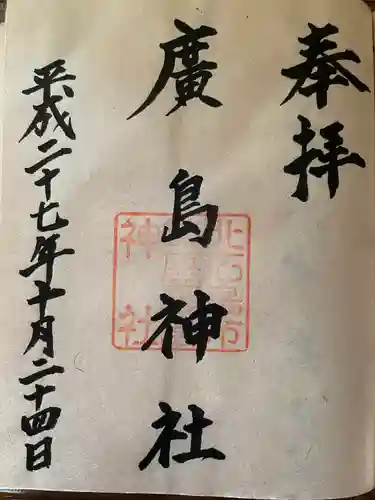 奉拝
廣島神社
平成二十七年十月二十四日
神社